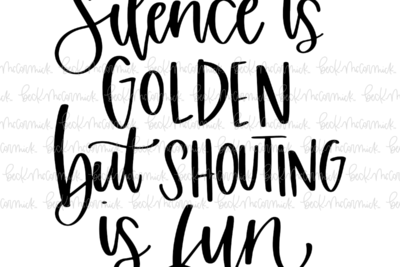 Silence is
GOLDEN
but SHOUTING
is fun